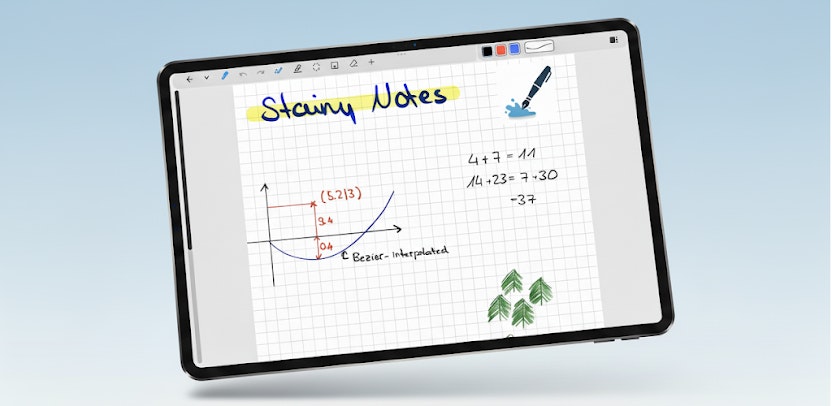 Stainy Notes
4+7 = 11
14+23 = 7+30
=37
(5.2|3)
3.4
0.4
Bezier-interpolated